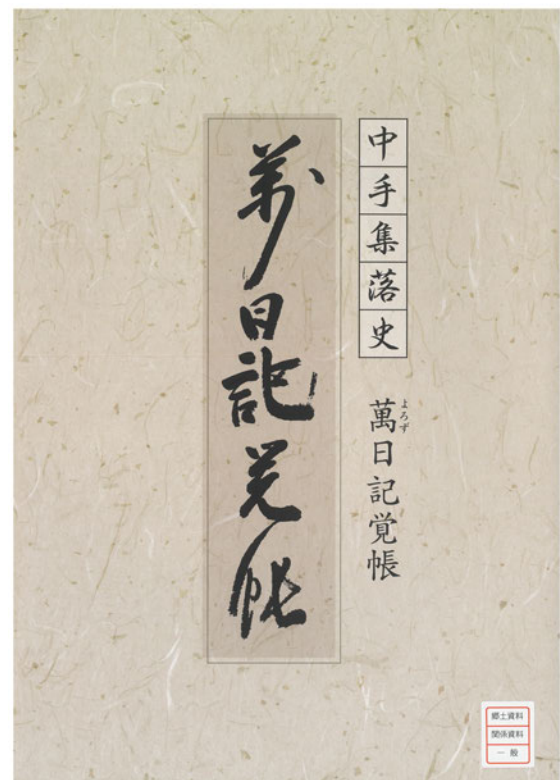 中手集落史
萬日記覚帳
よろず
萬日記覚帳
郷土資料
関係資料
一般